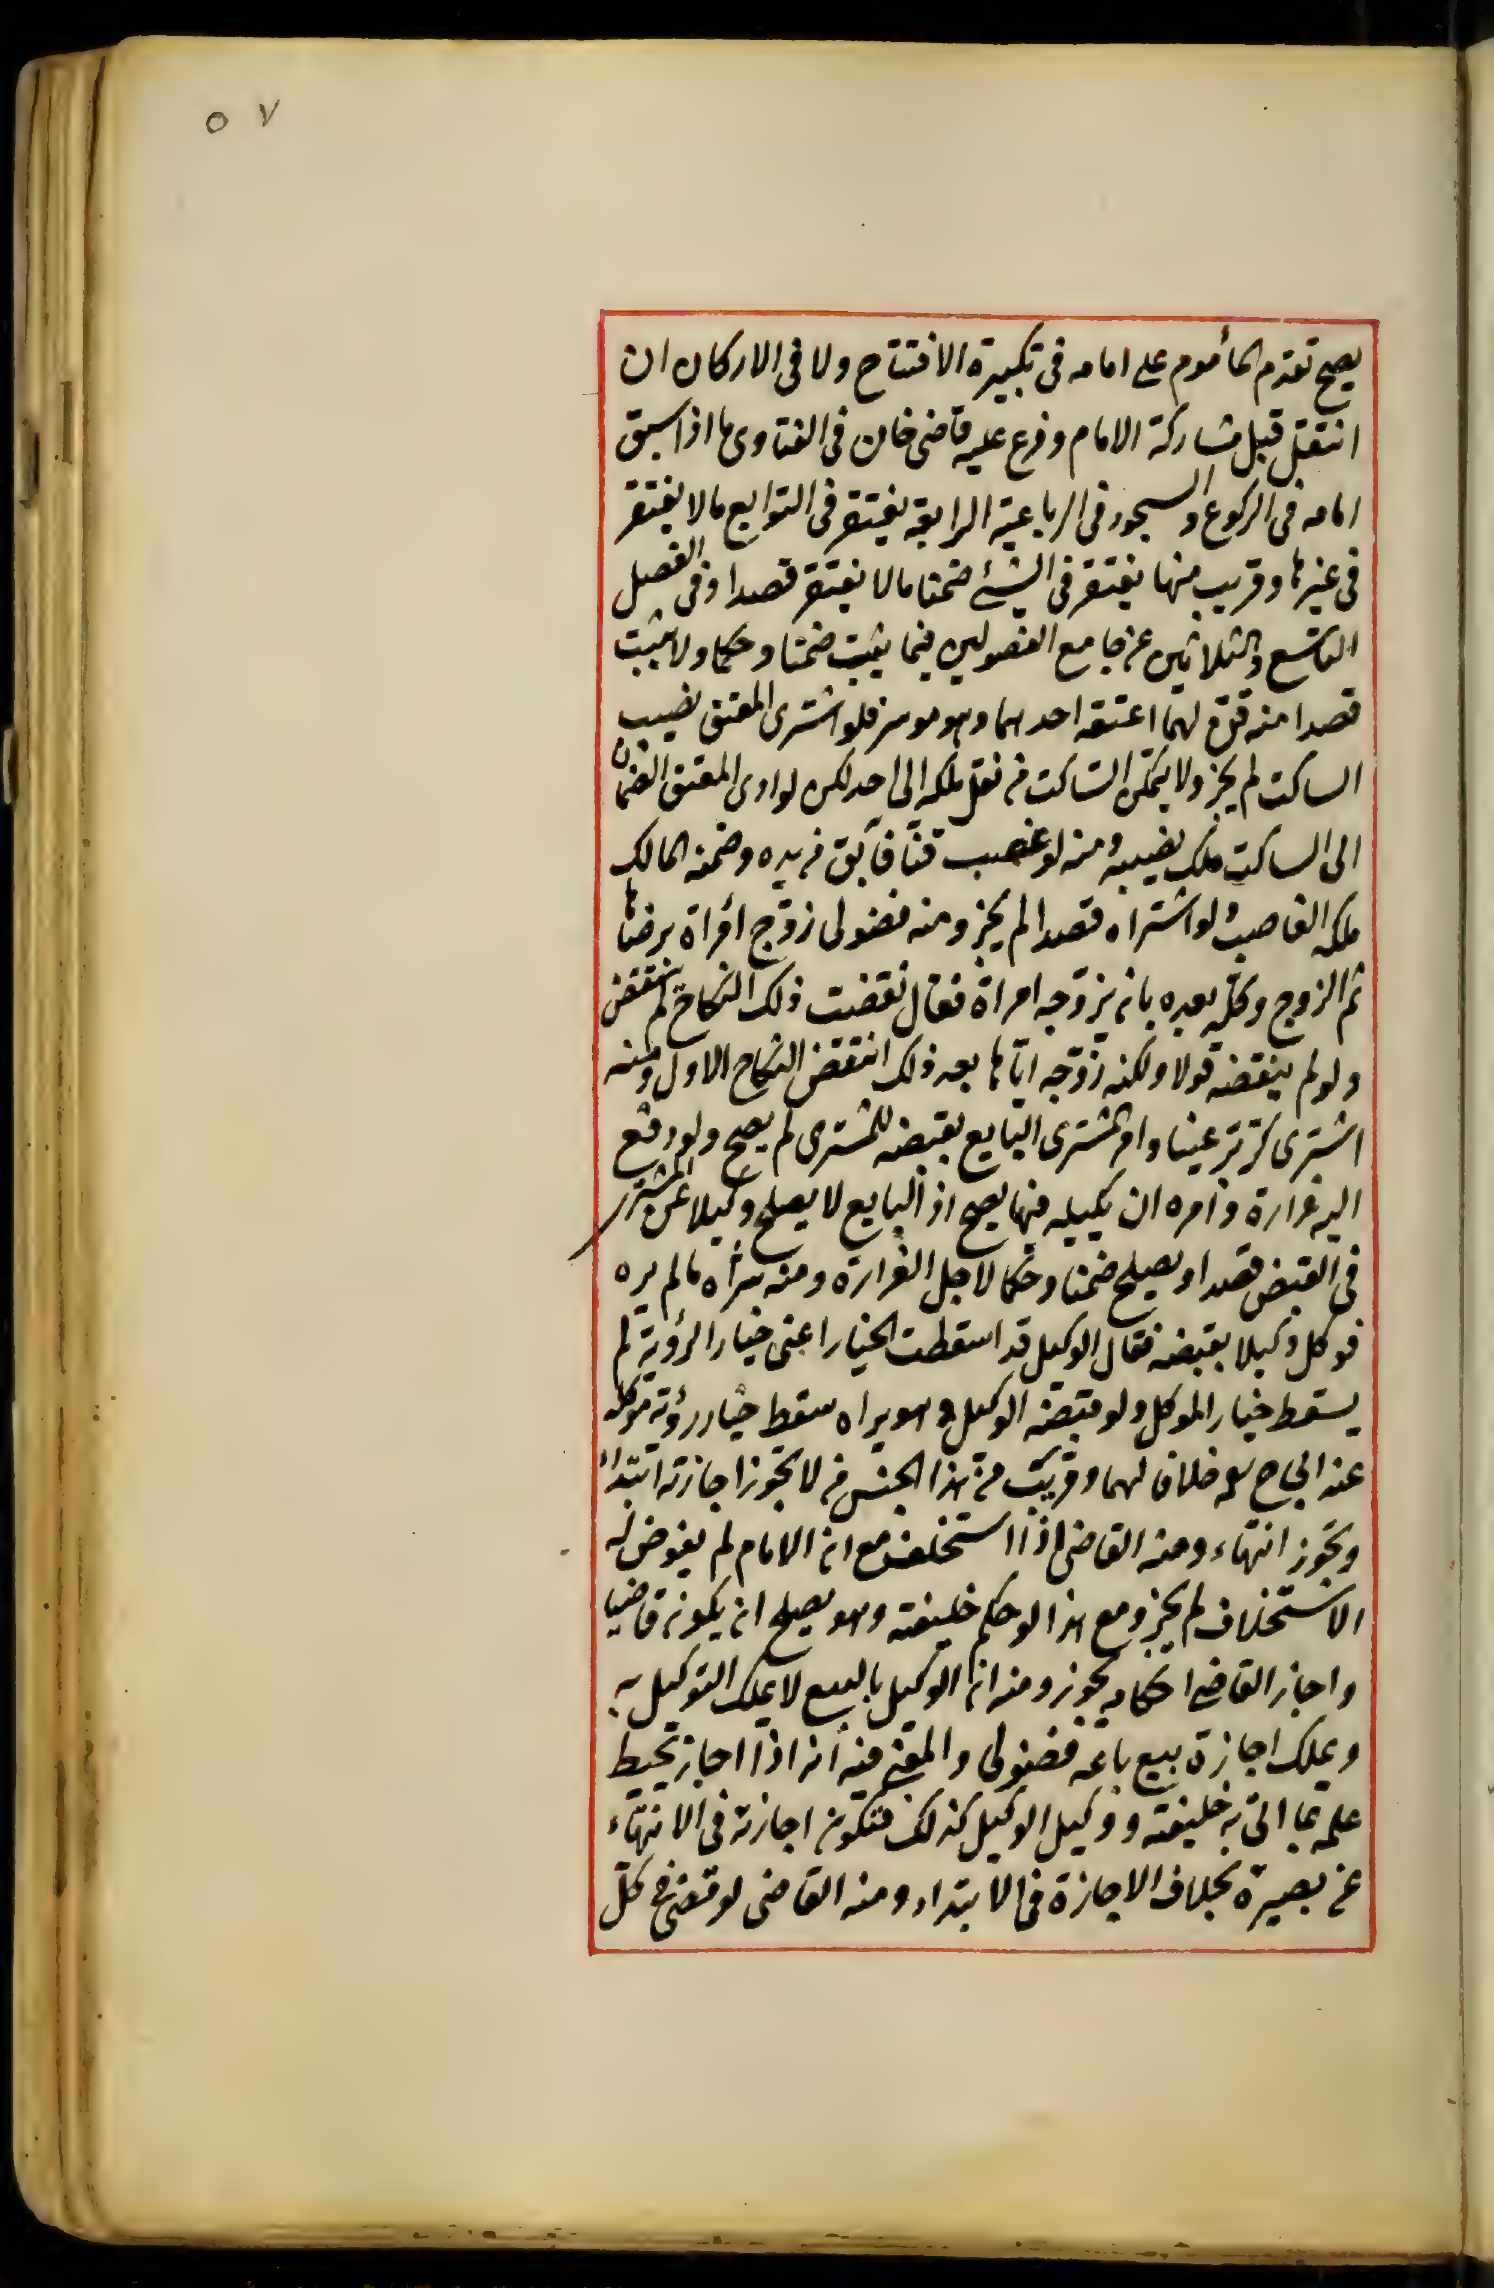 ٥٧
يصح تقدم المأموم على امامه فى تكبيرة الافتتاح ولا فى الاركان ان
انتقل قبل مشاركة الامام وفرع عليه قاضى خان فى الفتاوى ما اذا سبق
امامه فى الركوع والسجود فى الرباعية الرابعة يغتقر فى التوابع ما لا يغتقر
فى غيرها وقريب منها يغتقر فى الشئ ضمنا ما لا يغتقر قصدا وفى الفصل
التاسع والثلاثين من جامع الفصولين فيما يثبت ضمنا وحكما ولا يثبت
قصدا منه قن لهما اعتقه احدهما وهو موسر فلو اشترى المعتق نصيب
الساكت لم يجز ولا يتمكن الساكت من نقل ملكه الى احد لكن لو ادى المعتق الضمان
الى الساكت ملك نصيبه ومنه لو غصب قنا فأبق من يده وضمنه المالك
ملكه الغاصب ولو اشتراه قصدا لم يجز ومنه فضولى زوج أمرأة برضاها
ثم الزوج وكله بعده بان يزوجه امرأة فقال نقضت ذلك النكاح لم ينتقض
ولو لم ينقضه قولا ولكنه زوجه اياها بعد ذلك انتقض النكاح الاول ومنه
اشترى كر بر عينا وامر المشترى البايع بقبضه للمشترى لم يصح ولو دفع
اليه غرارة وامره ان يكيله فيها يصح اذ البايع لا يصلح وكيلا عن المشترى
فى القبض قصدا ويصلح ضمنا وحكما لاجل الغرارة ومنه شراه ما لم يره
فوكل وكيلا بقبضه فقال الوكيل قد اسقطت الخيار اعنى خيار الرؤية لم
يسقط خيار الموكل ولو قبضه الوكيل وهو يراه سقط خيار رؤية موكله
عند ابى ح خلافا لهما وقريب من هذا الجنس من لا تجوز اجازته ابتداء
وتجوز انتهاء ومنه القاضى اذا استخلف مع ان الامام لم يفوض له
الاستخلاف لم يجز ومع هذا لو حكم خليفته وهو يصلح ان يكون قاضيا
واجاز القاضى احكامه يجوز ومنه ان الوكيل بالبيع لا يملك التوكيل به
ويملك اجازة بيع باعه فضولى والمعنى فيه انه اذا اجاز يحيط
علمه بما اتى به خليفته ووكيل الوكيل كذلك فتكون اجازته فى الانتهاء
عن بصيرة بخلاف الاجازة فى الابتداء ومنه القاضى لو قضى فى كل